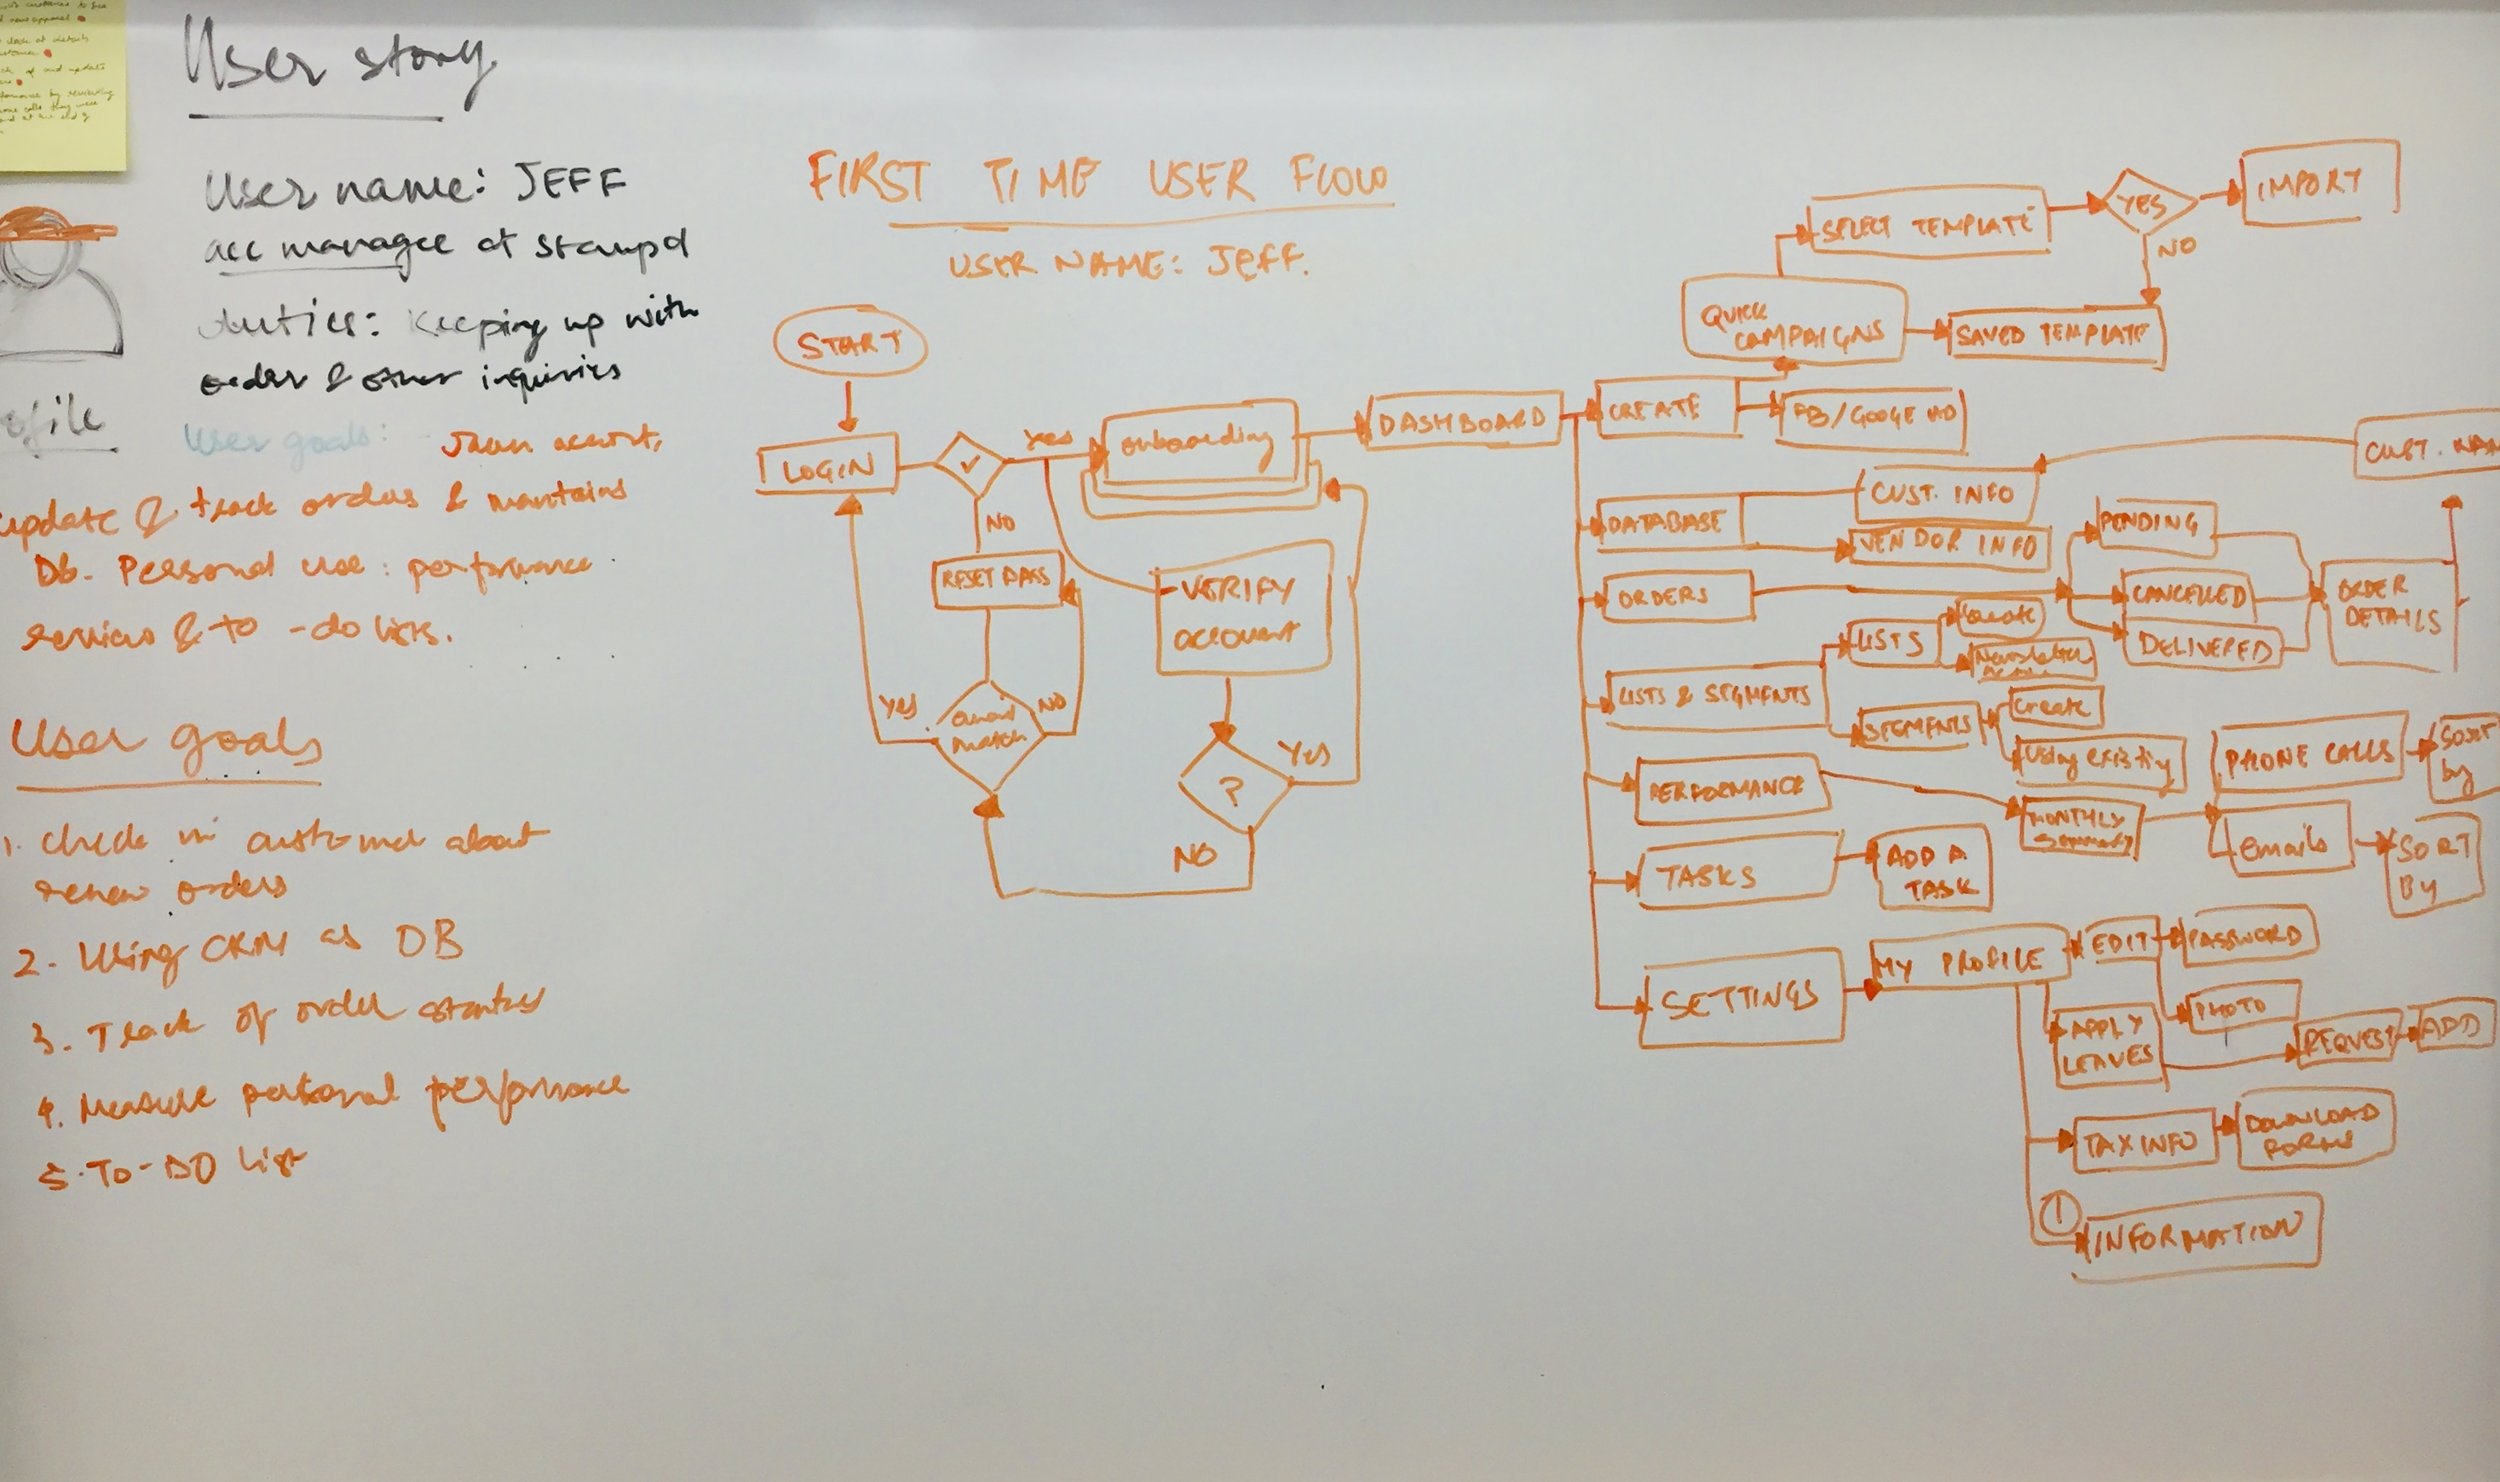 User story
User name: JEFF
acc manager at stampd
duties: Keeping up with
order & other inquiries
User goals:
account,
update & track orders & maintains
Db. Personal use: performance
& to-do lists.
User goals
1. check in customer about
renew orders
2. Using CRM as DB
3. Track of order status
4. Measure personal performance
5. TO-DO list
FIRST TIME USER FLOW
USER NAME: JEFF.
START
LOGIN
Yes
NO
onboarding
DASHBOARD
RESET PASS
VERIFY
account
Yes
email
match
NO
?
Yes
NO
CREATE
QUICK
CAMPAIGNS
SELECT TEMPLATE
YES
NO
IMPORT
SAVED TEMPLATE
FB/GOOGE AD
DATABASE
CUST. INFO
CUST. NAM
VENDOR INFO
ORDERS
PENDING
CANCELLED
DELIVERED
ORDER
DETAILS
LISTS & SEGMENTS
LISTS
Create
SEGMENTS
Create
Using existing
PERFORMANCE
MONTHLY
Summary
PHONE CALLS
SORT
by
emails
SORT
BY
TASKS
ADD A
TASK
SETTINGS
MY PROFILE
EDIT
PASSWORD
PHOTO
APPLY
LEAVES
REQUEST
ADD
TAX INFO
DOWNLOAD
FORM
1
INFORMATION